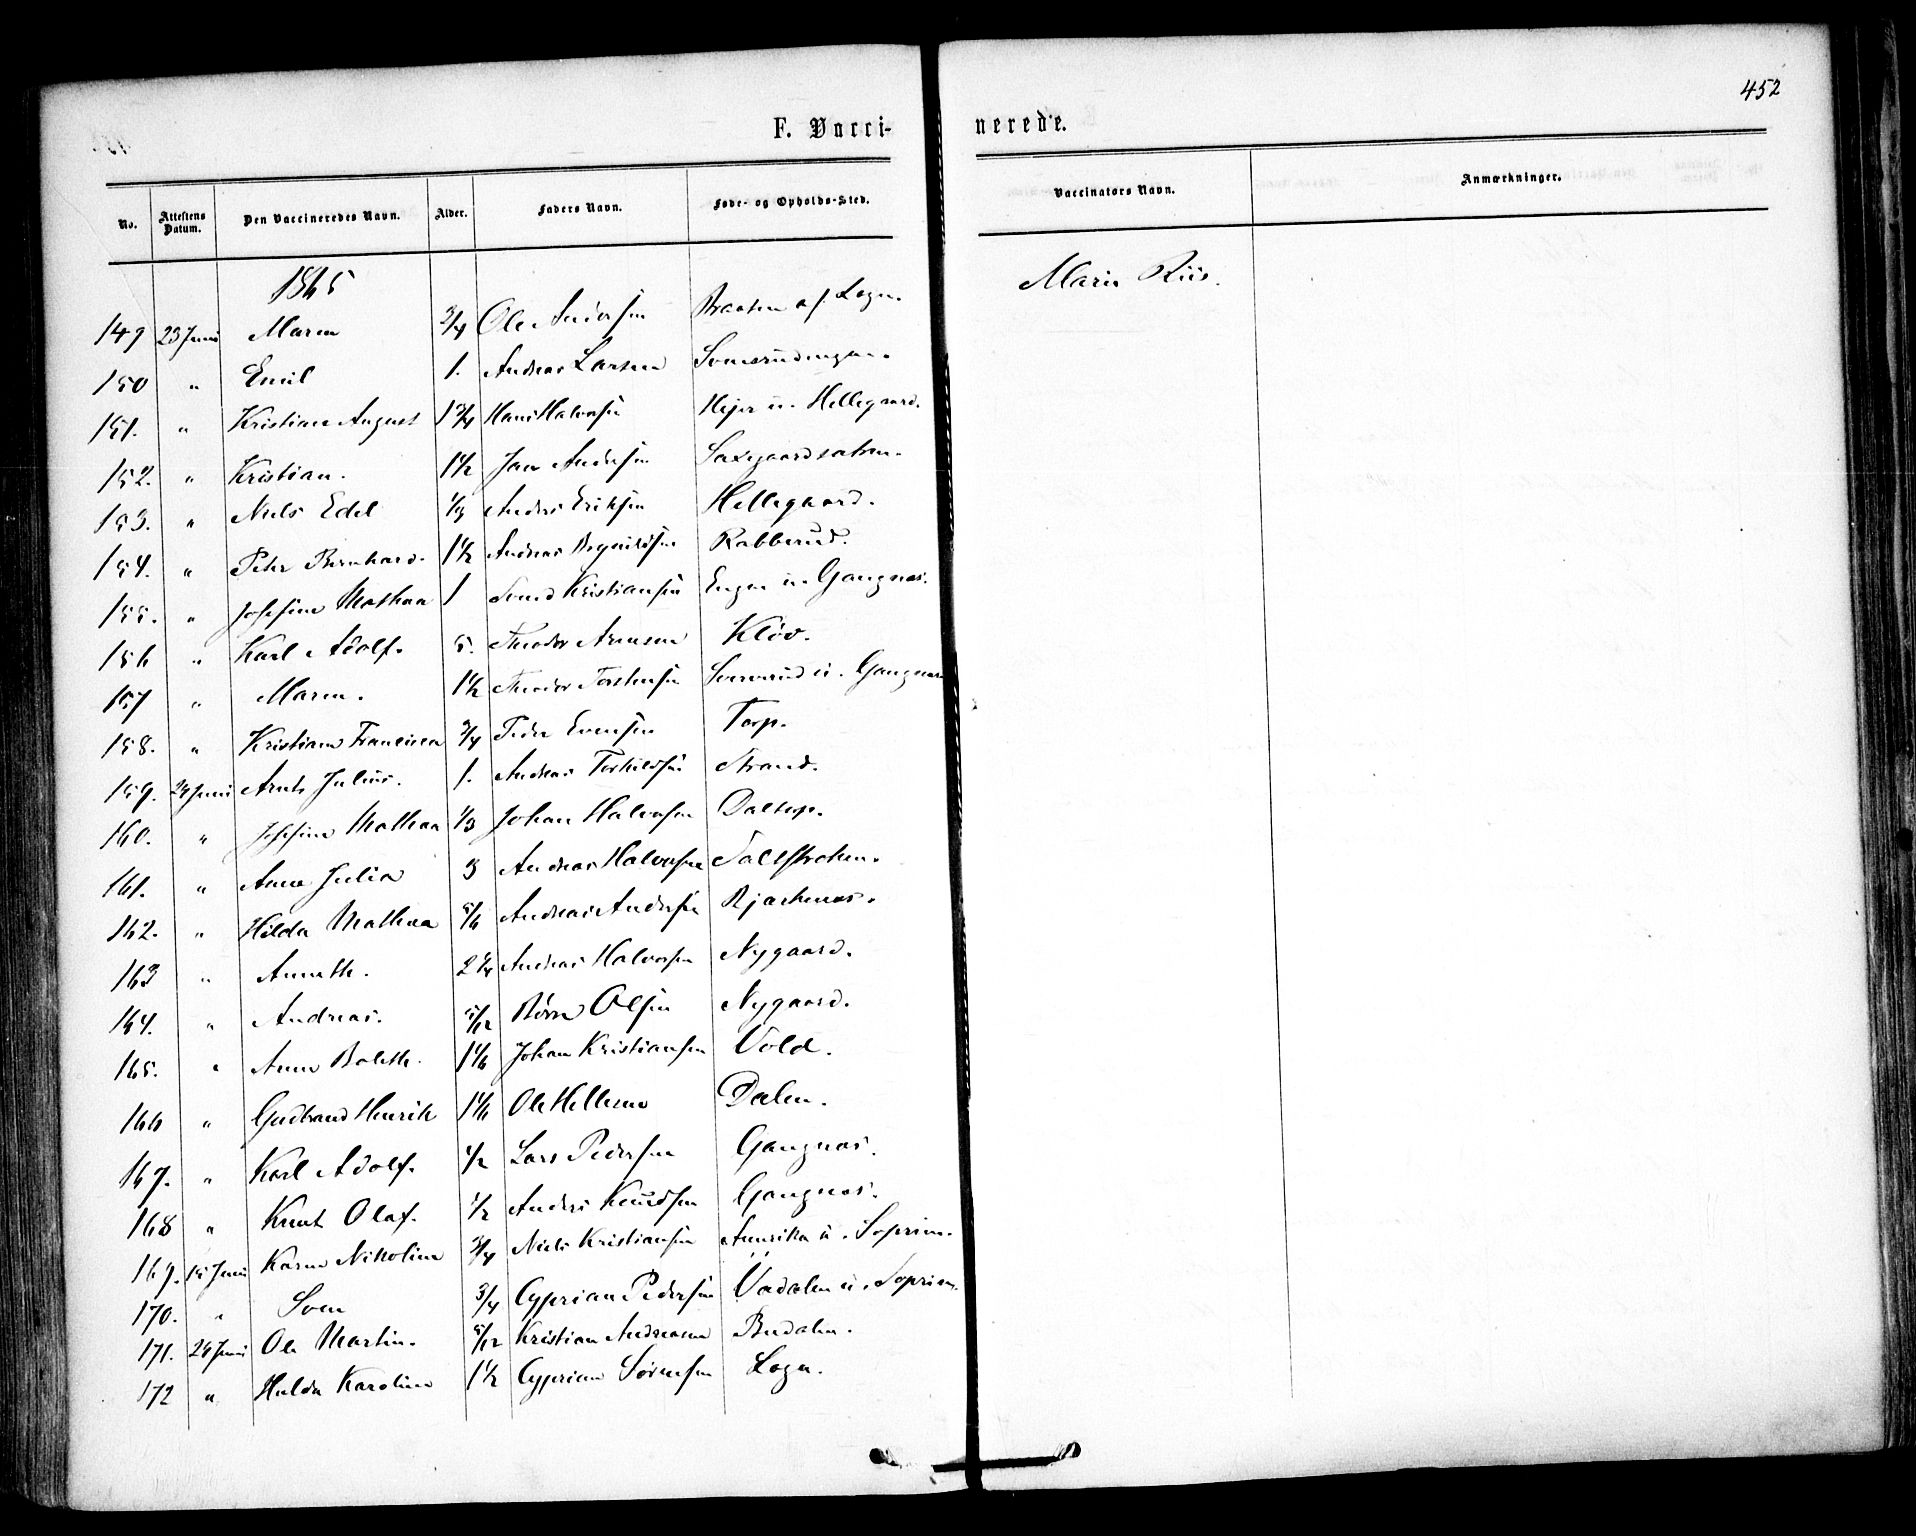 452
F. Vaccinerede.
No. Attestens Datum. Den Vaccineredes Navn. Alder. Faders Navn. Føde- og Opholds-Sted. Vaccinators Navn. Anmærkninger.
1865 Marie Riis.
149 23 Juni Maren 3/4 Ole Andersen Braaten af Logn.
150 " Emil 1. Andreas Larsen
151. " Kristian August 1 3/4 Hans Halvorsen u. Hellegaard.
152. " Kristian. 1 1/2 Andersen
153. " Niels Edel 1/3 Anders Eriksen Hellegaard.
154. " Peter Bernhard. 1 1/2 Andreas Rabberud.
155. " Josefine Mathea 1 Svend Kristiansen Engen u. Gangnæs.
156 " Karl Adolf. 5. Theodor Arnesen Kløv.
157 " Maren. 1 1/2 Theodor Torstensen u. Gangnæs
158. " Kristiane Francisca 3/4 Peder Evensen Torp.
159. 24 Juni Arnt Julius. 1. Andreas Terkildsen Strand.
160. " Josefine Mathea 1/3 Johan Halvorsen Daltorp.
161. " Anne Julia 3 Andreas Halvorsen
162. " Hilda Mathea 5/6 Andreas Andersen
163 " Anneth. 2 1/4 Andreas Halvorsen Nygaard.
164. " Andreas. 5/12 Olsen Nygaard.
165. " Anne Boleth. 1 1/6 Johan Kristiansen Vold.
166 " Gudbrand Henrik 1 1/6 Ole Hellesen Dalen.
167. " Karl Adolf. 1/2 Lars Pedersen Gangnæs.
168 " Knut Olaf. 1/2 Anders Knudsen Gangnæs.
169. 15 Juni Karen Nikoline 3/4 Niels Kristiansen Amerika u. Soprim.
170. " Sven 3/4 Cyprian Pedersen u. Soprim.
171. 24 Juni Ole Martin. 5/12 Kristian Andreasen Budalen.
172 " Hulda Karoline 1 1/2 Cyprian Sørensen Logn.